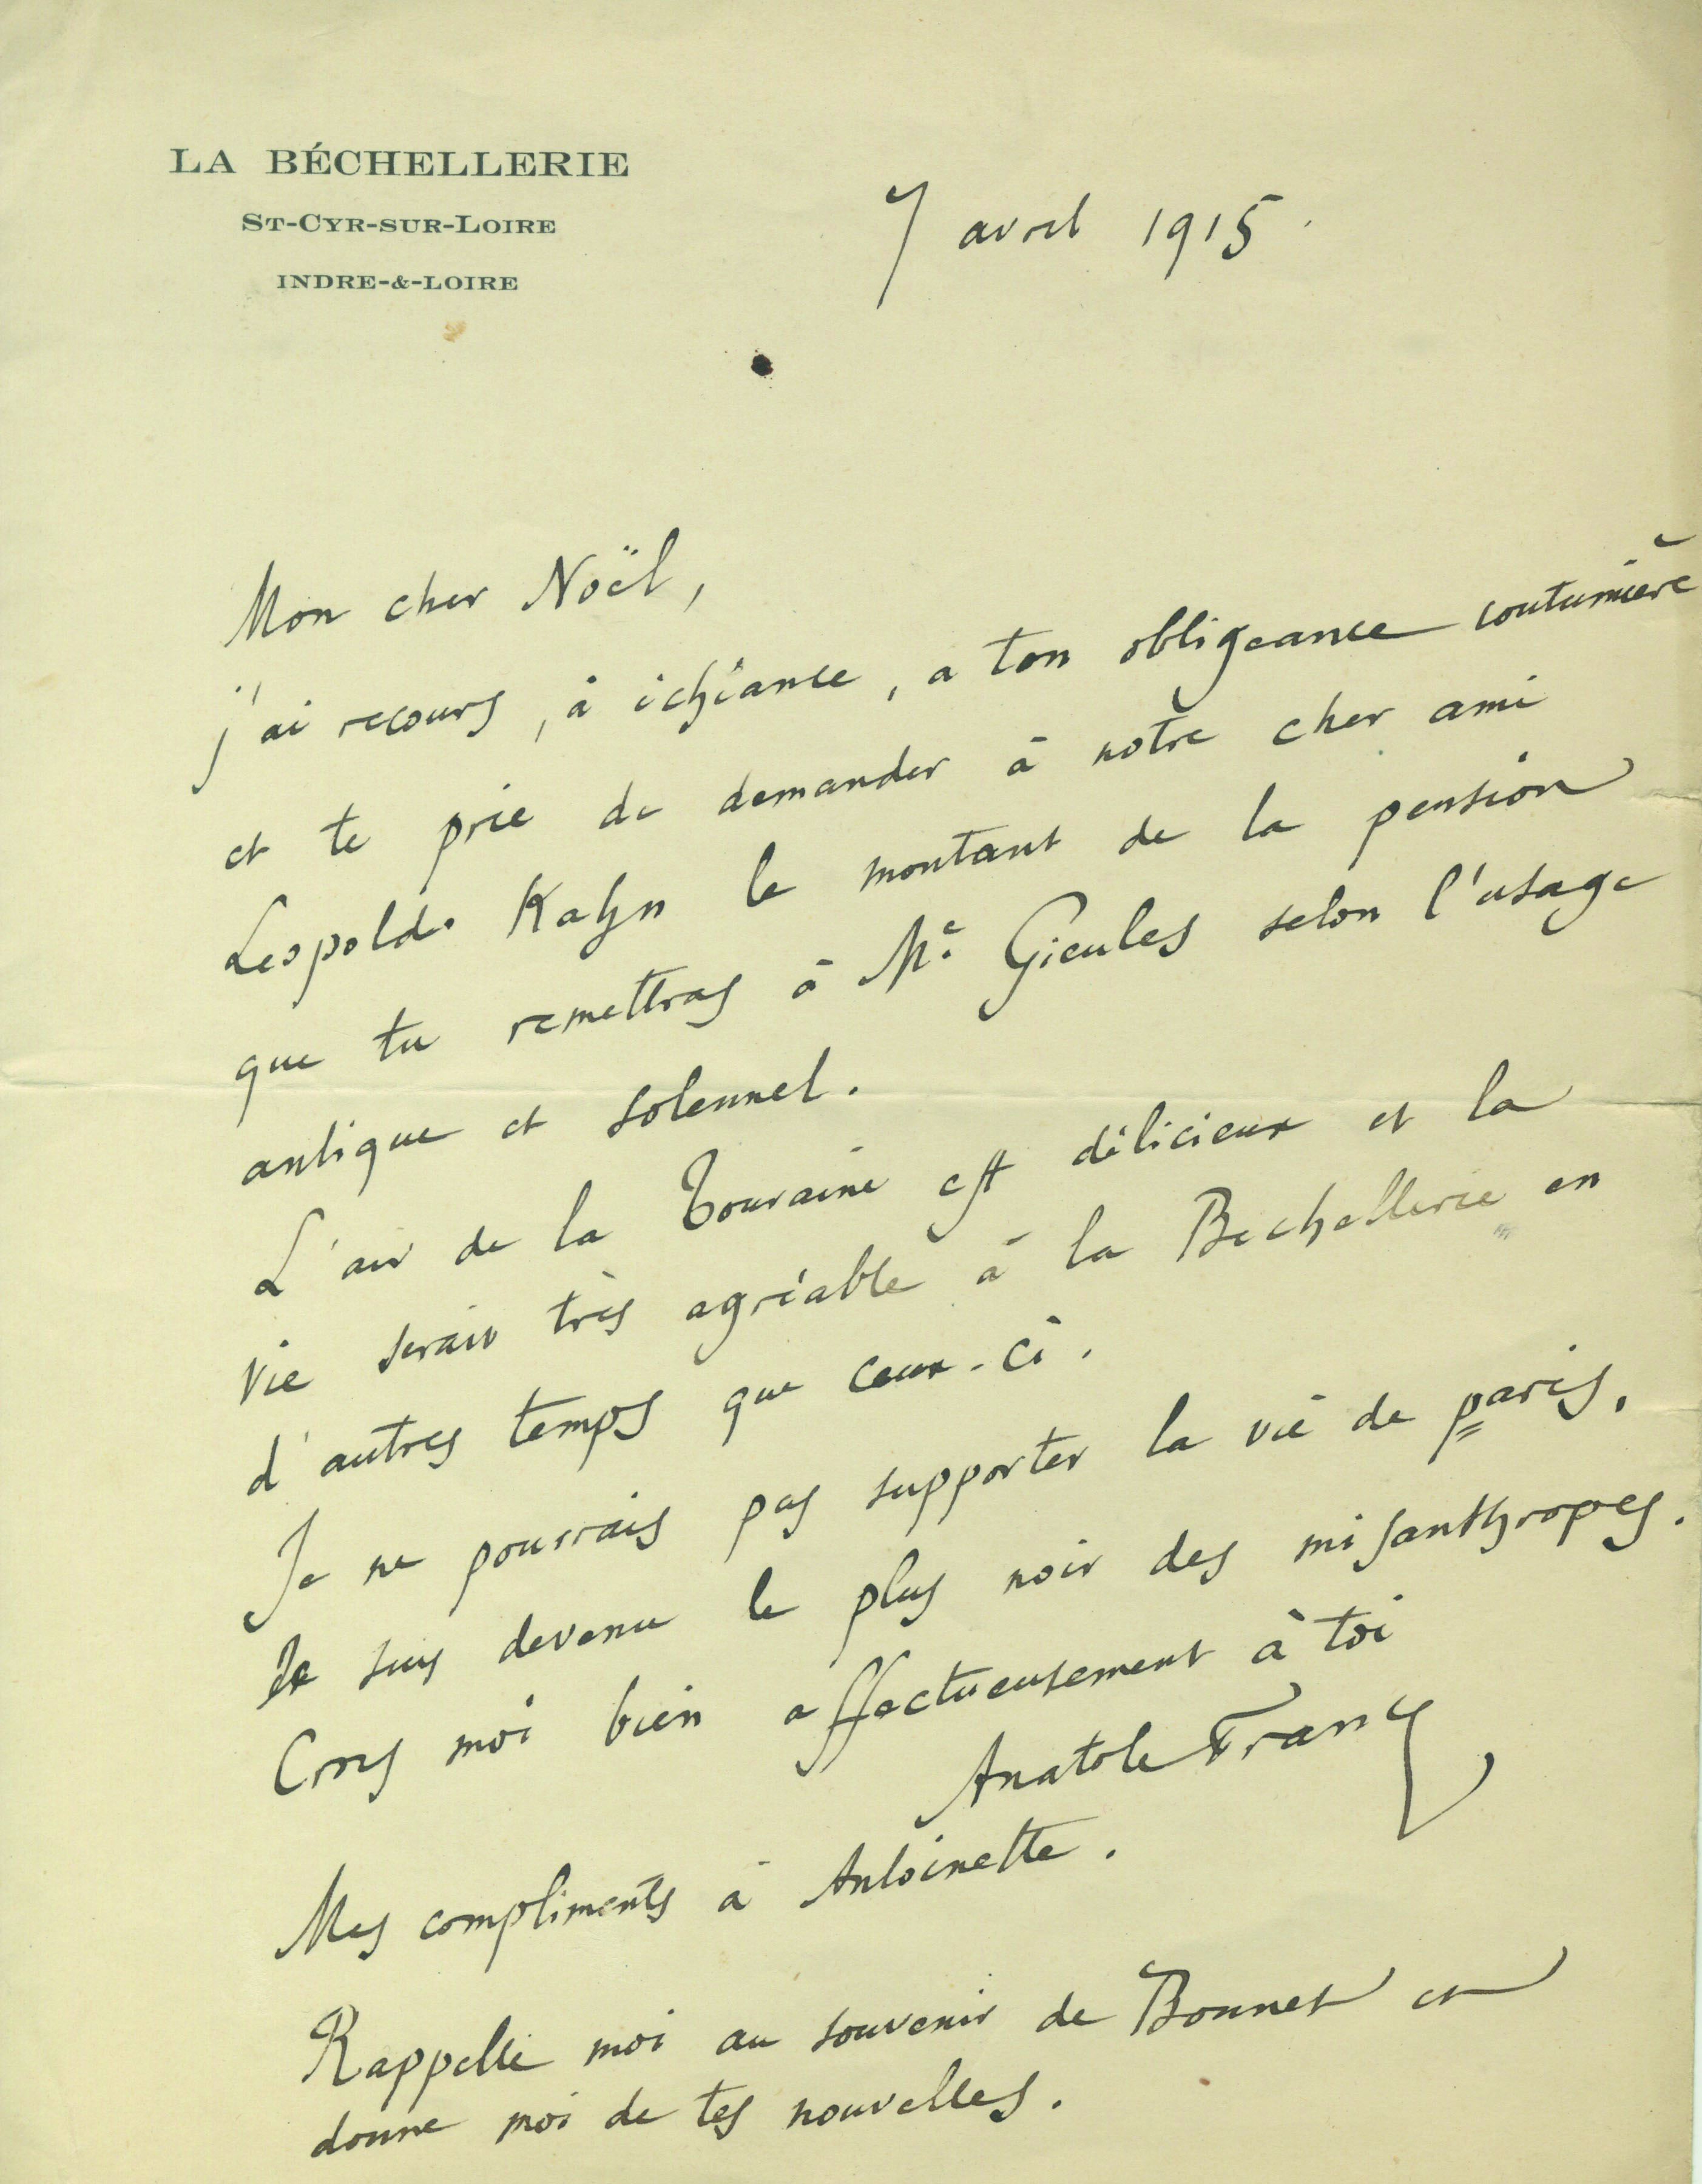 LA BÉCHELLERIE
ST-CYR-SUR-LOIRE
INDRE-&-LOIRE
7 avril 1915.
Mon cher Noël,
j'ai recours, à échéance, a ton obligeance coutumière
et te prie de demander à notre cher ami
Leopold Kahn le montant de la pension
que tu remettras à Me Gieules selon l'usage
antique et solennel.
L'air de la Touraine est délicieux et la
vie serait très agréable à la Bechellerie en
d'autres temps que ceux-ci.
Je ne pourrais pas supporter la vie de paris.
Je suis devenu le plus noir des misanthropes.
Crois moi bien affectueusement à toi
Anatole France
Mes compliments à Antoinette.
Rappelle moi au souvenir de Bonnet et
donne moi de tes nouvelles.